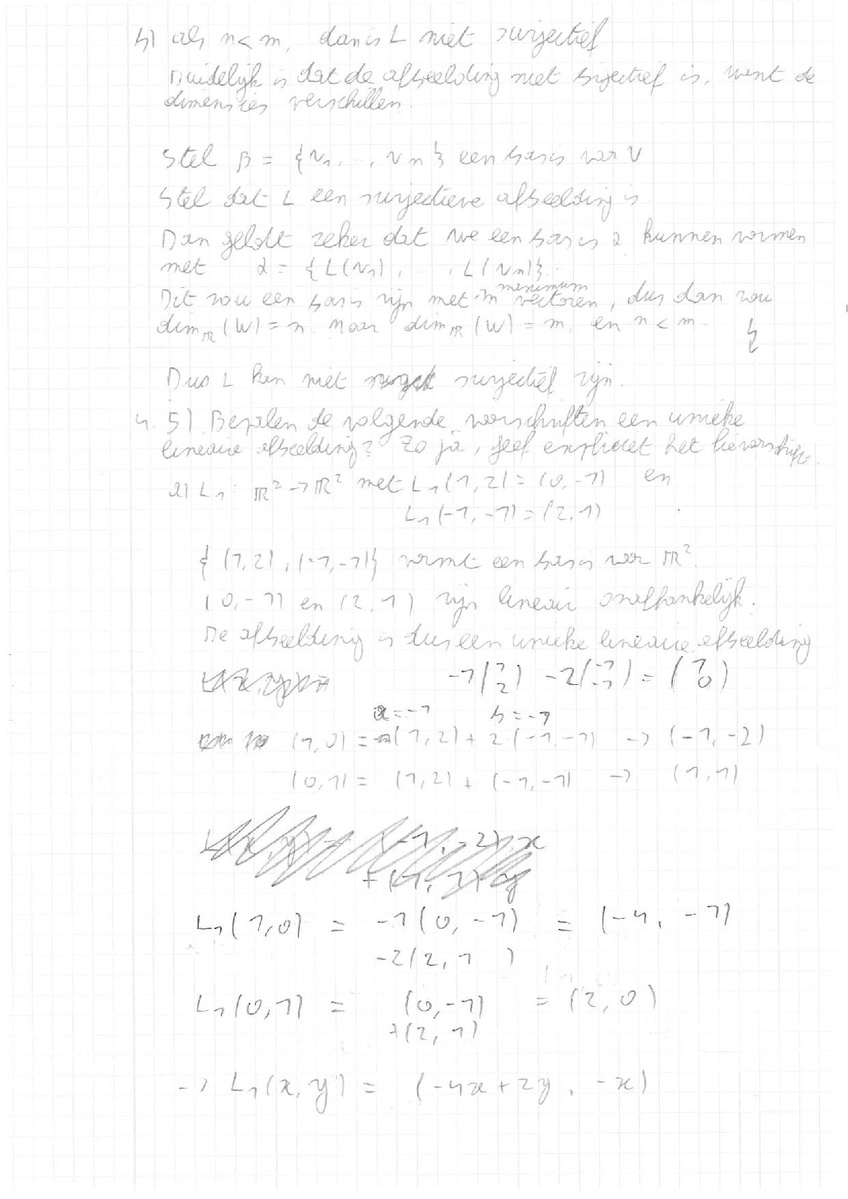 b) als n < m, dan is L niet surjectief
Duidelijk is dat de afbeelding niet bijectief is, want de
dimensies verschillen.
Stel β = {v₁, ..., vₙ} een basis van V
Stel dat L een surjectieve afbeelding is
Dan geldt zeker dat we een basis α kunnen vormen
met α = {L(v₁), ..., L(vₙ)}.
minimum
Dit zou een basis zijn met n vectoren, dus dan zou
dim_ℝ(W) = n. Maar dim_ℝ(W) = m, en n < m.
Dus L kan niet surjectief zijn.
4.5) Bepalen de volgende voorschriften een unieke
lineaire afbeelding? Zo ja, geef expliciet het
a) L₁: ℝ² → ℝ² met L₁(1,2) = (0,-1) en
L₁(-1,-1) = (2,1)
{(1,2), (-1,-1)} vormt een basis voor ℝ².
(0,-1) en (2,1) zijn lineair onafhankelijk.
De afbeelding is dus een unieke lineaire afbeelding
-1(1 2) -2(-1 -1) = (1 0)
a = -1 b = -1
(1,0) = -(1,2) + 2·(-1,-1) → (-1,-2)
(0,1) = (1,2) + (-1,-1) → (1,1)
L₁(1,0) = -1(0,-1) = (-4, -1)
-2(2,1)
L₁(0,1) = (0,-1) = (2,0)
+(2,1)
→ L₁(x,y) = (-4x+2y, -x)